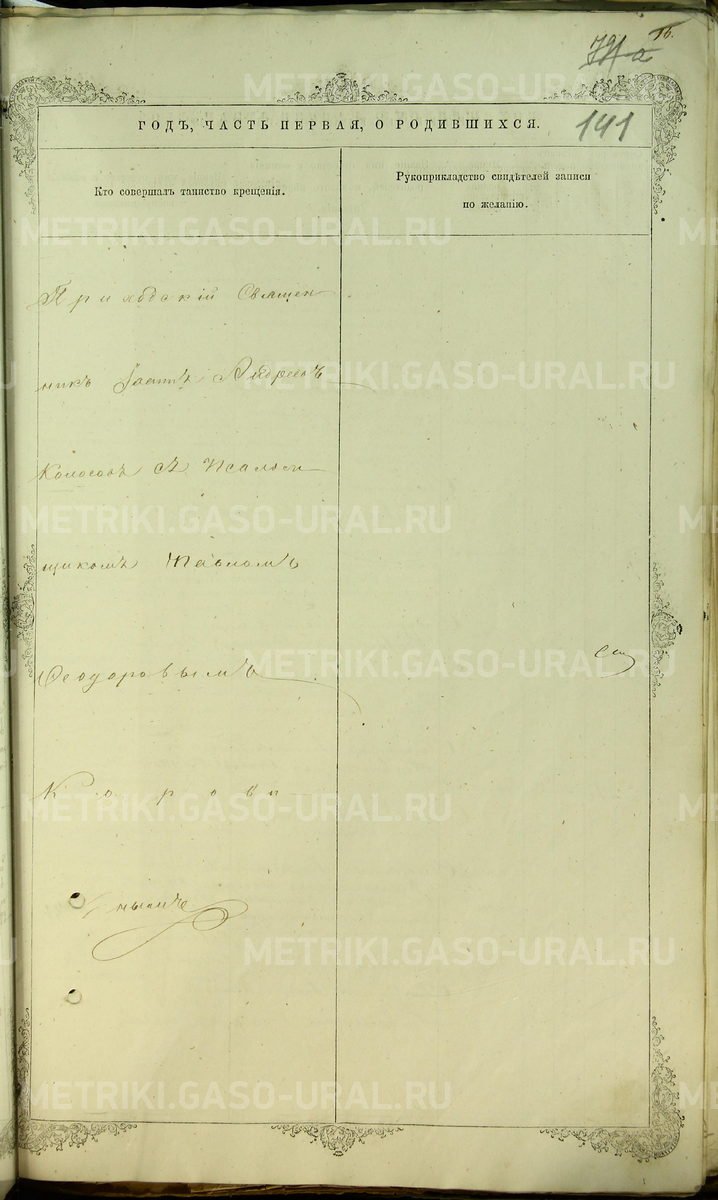 141
ГОДЪ, ЧАСТЬ ПЕРВАЯ, О РОДИВШИХСЯ.
Кто совершалъ таинство крещенія.
Рукоприкладство свидѣтелей записи
по желанію.
Приходскій Священ
никъ Іоаннъ Андреевъ
Колосовъ съ Псалом
щикомъ Павломъ
Ѳеодоровымъ
Корови
нымъ
METRIKI.GASO-URAL.RU